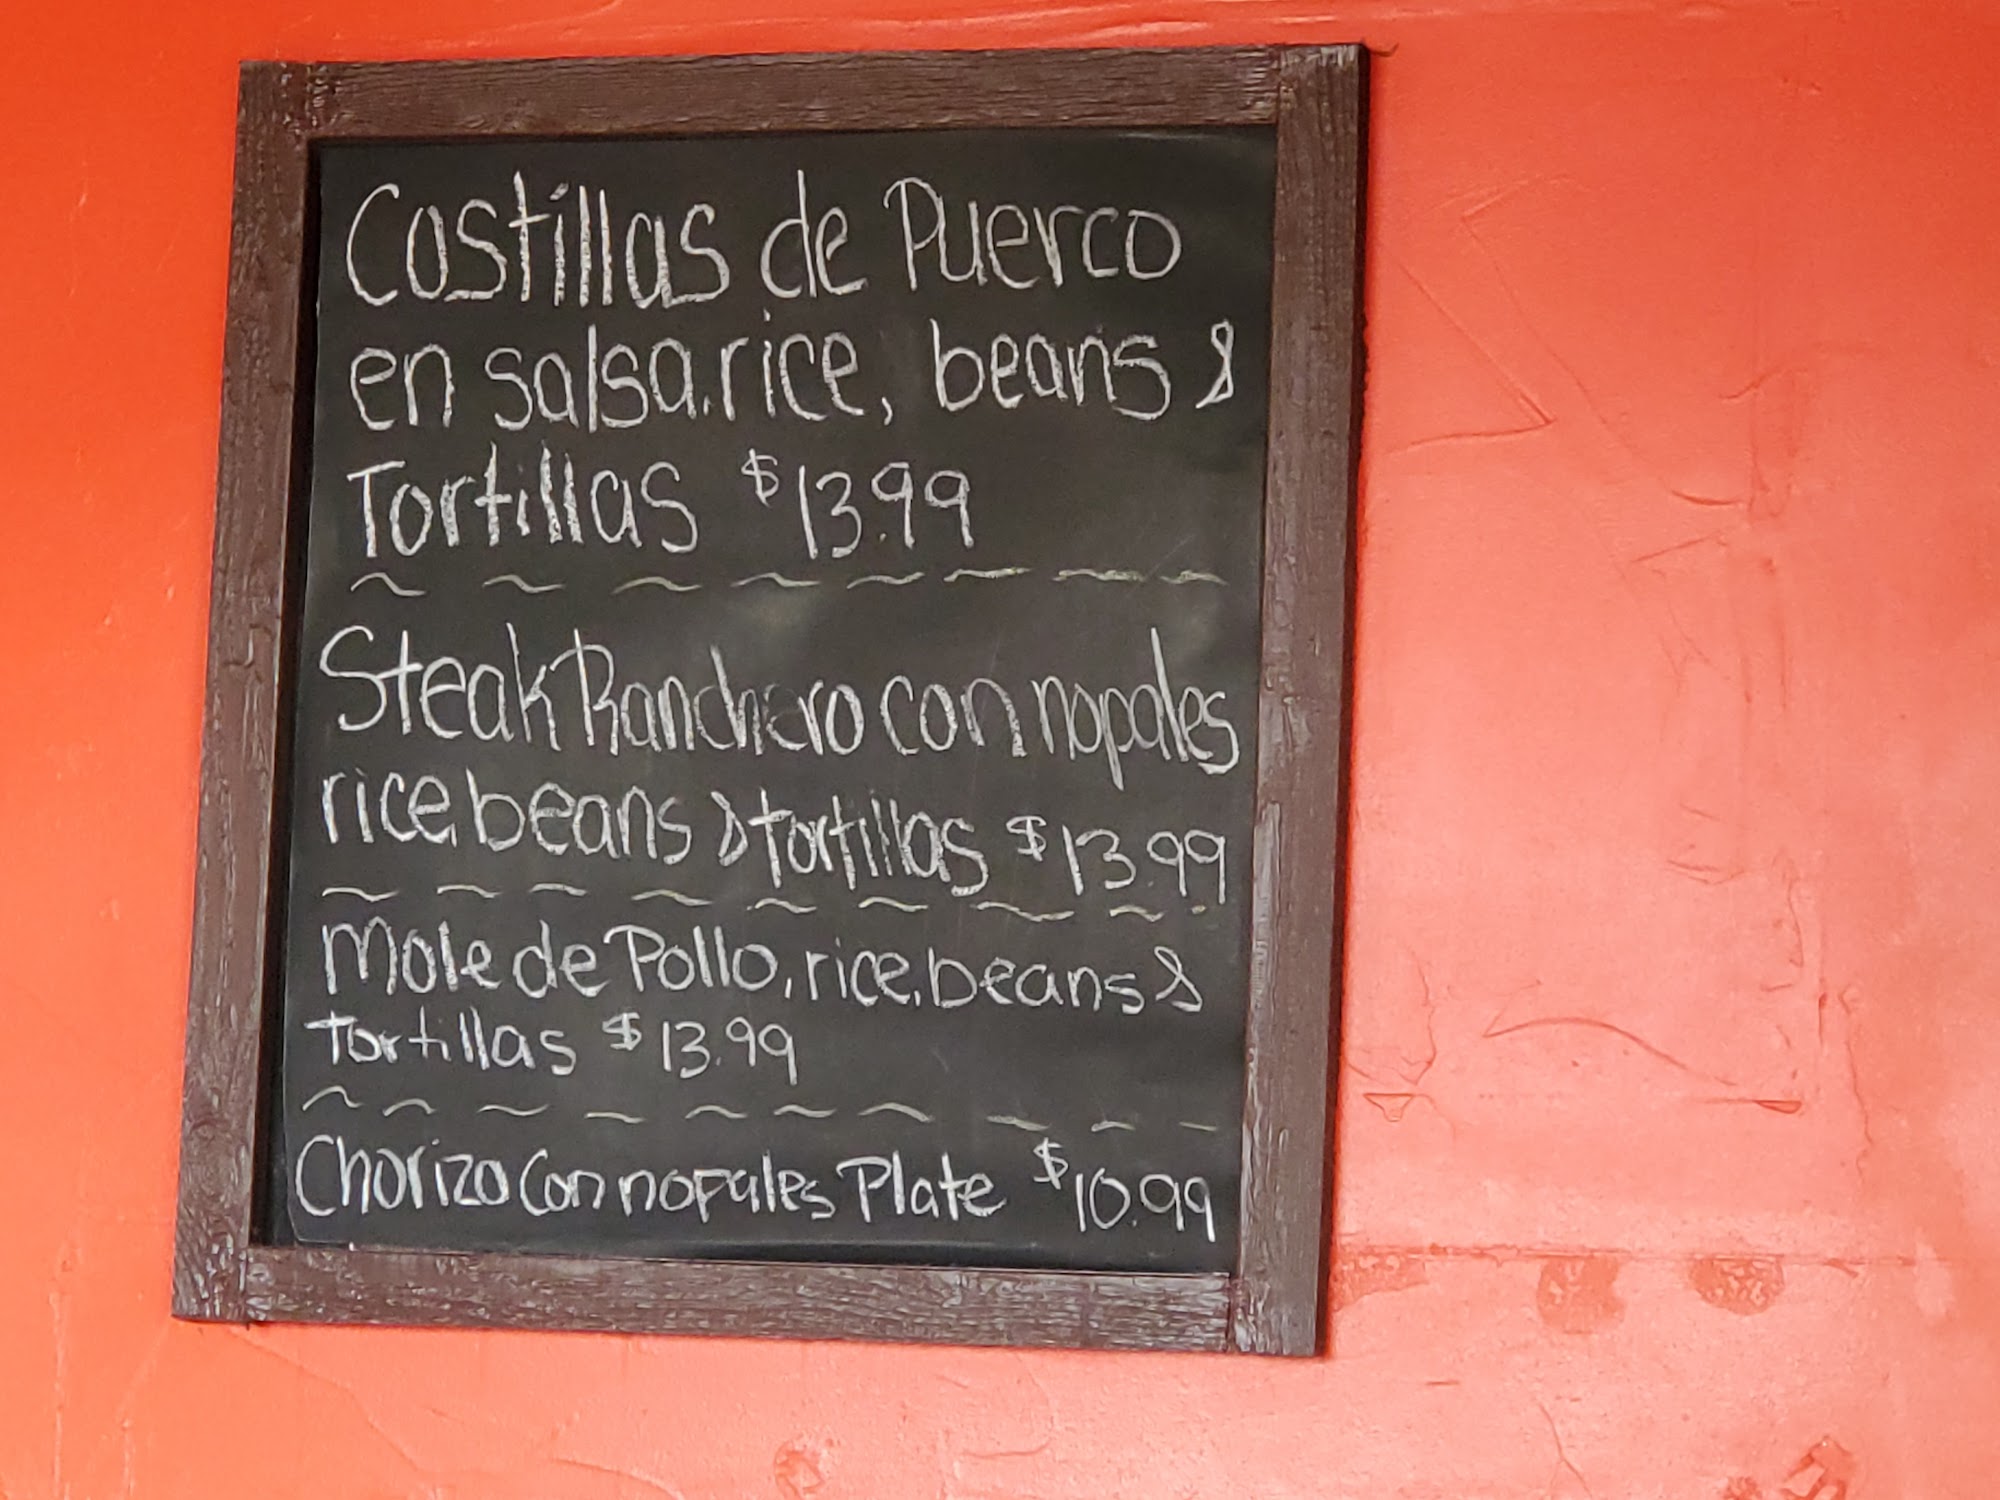 Costillas de Puerco
en salsa.rice, beans &
Tortillas $13.99
Steak Ranchero con nopales
rice, beans & tortillas $13.99
Mole de Pollo, rice, beans &
Tortillas $13.99
Chorizo Con nopales Plate $10.99